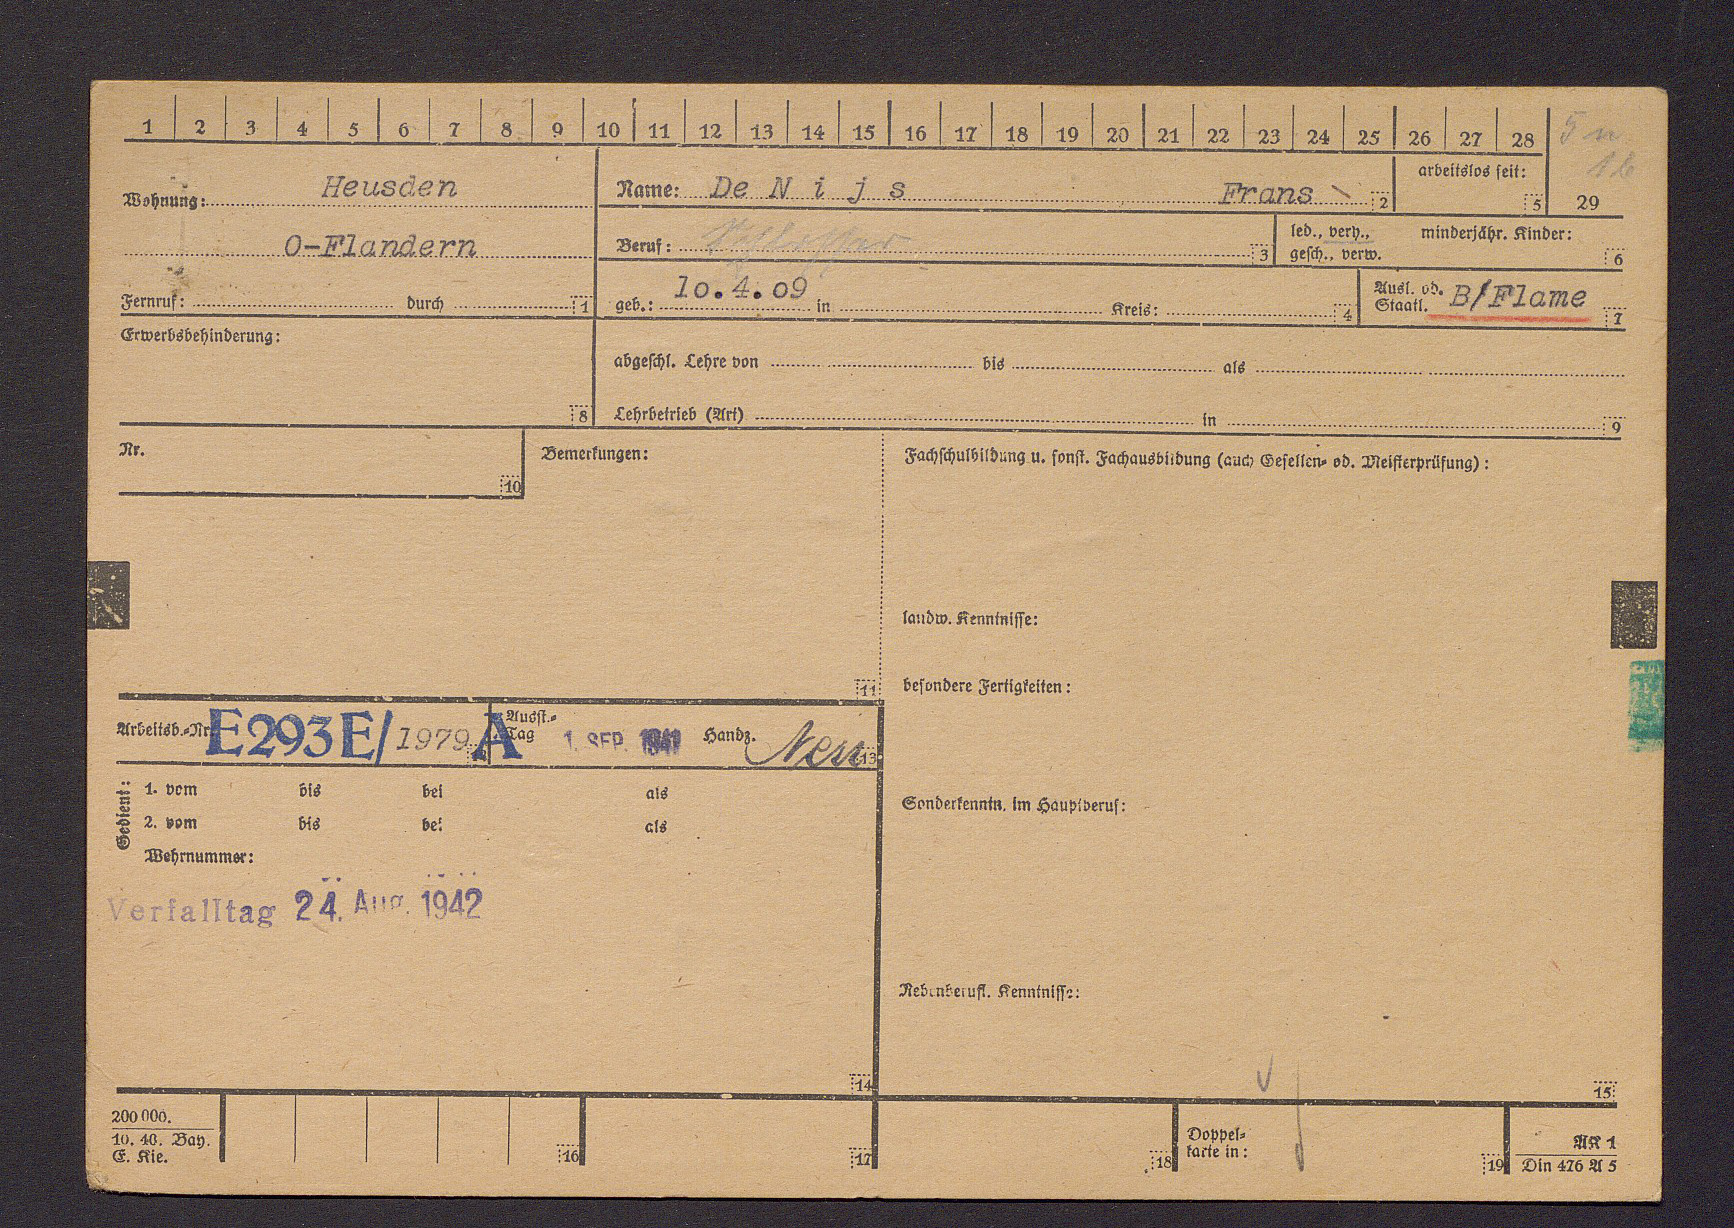 1 2 3 4 5 6 7 8 9 10 11 12 13 14 15 16 17 18 19 20 21 22 23 24 25 26 27 28
29
Wohnung: Heusden
O-Flandern
Fernruf: durch 1
Name: De N i j s Frans 2
arbeitslos seit: 5
Beruf: Schlosser 3
led., verh., minderjähr. Kinder:
gesch., verw. 6
geb.: 10.4.09 in Kreis: 4
Ausl. od.
Staatl. B/Flame 7
Erwerbsbehinderung:
8
abgeschl. Lehre von bis als
Lehrbetrieb (Art) in 9
Nr.
10
Bemerkungen:
11
Fachschulbildung u. sonst. Fachausbildung (auch Gesellen- od. Meisterprüfung):
landw. Kenntnisse:
besondere Fertigkeiten:
Sonderkenntn. im Hauptberuf:
Nebenberufl. Kenntnisse:
15
Arbeitsb.-Nr. E293E/1979 A
Ausst.-
Tag 1. SEP. 1941 Handz. 13
Gedient:
1. vom bis bei als
2. vom bis bei als
Wehrnummer:
Verfalltag 24. Aug. 1942
14
200 000.
10. 40. Bay.
E. Kie.
16
17
18
Doppel-
karte in:
19
AK 1
Din 476 A 5